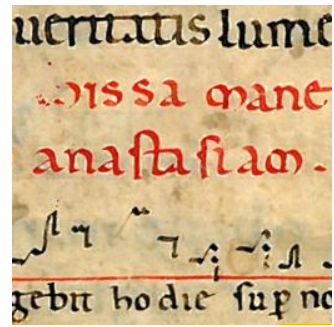 ueritatis lume
Missa mane
anastasiam.
gebit hodie sup no